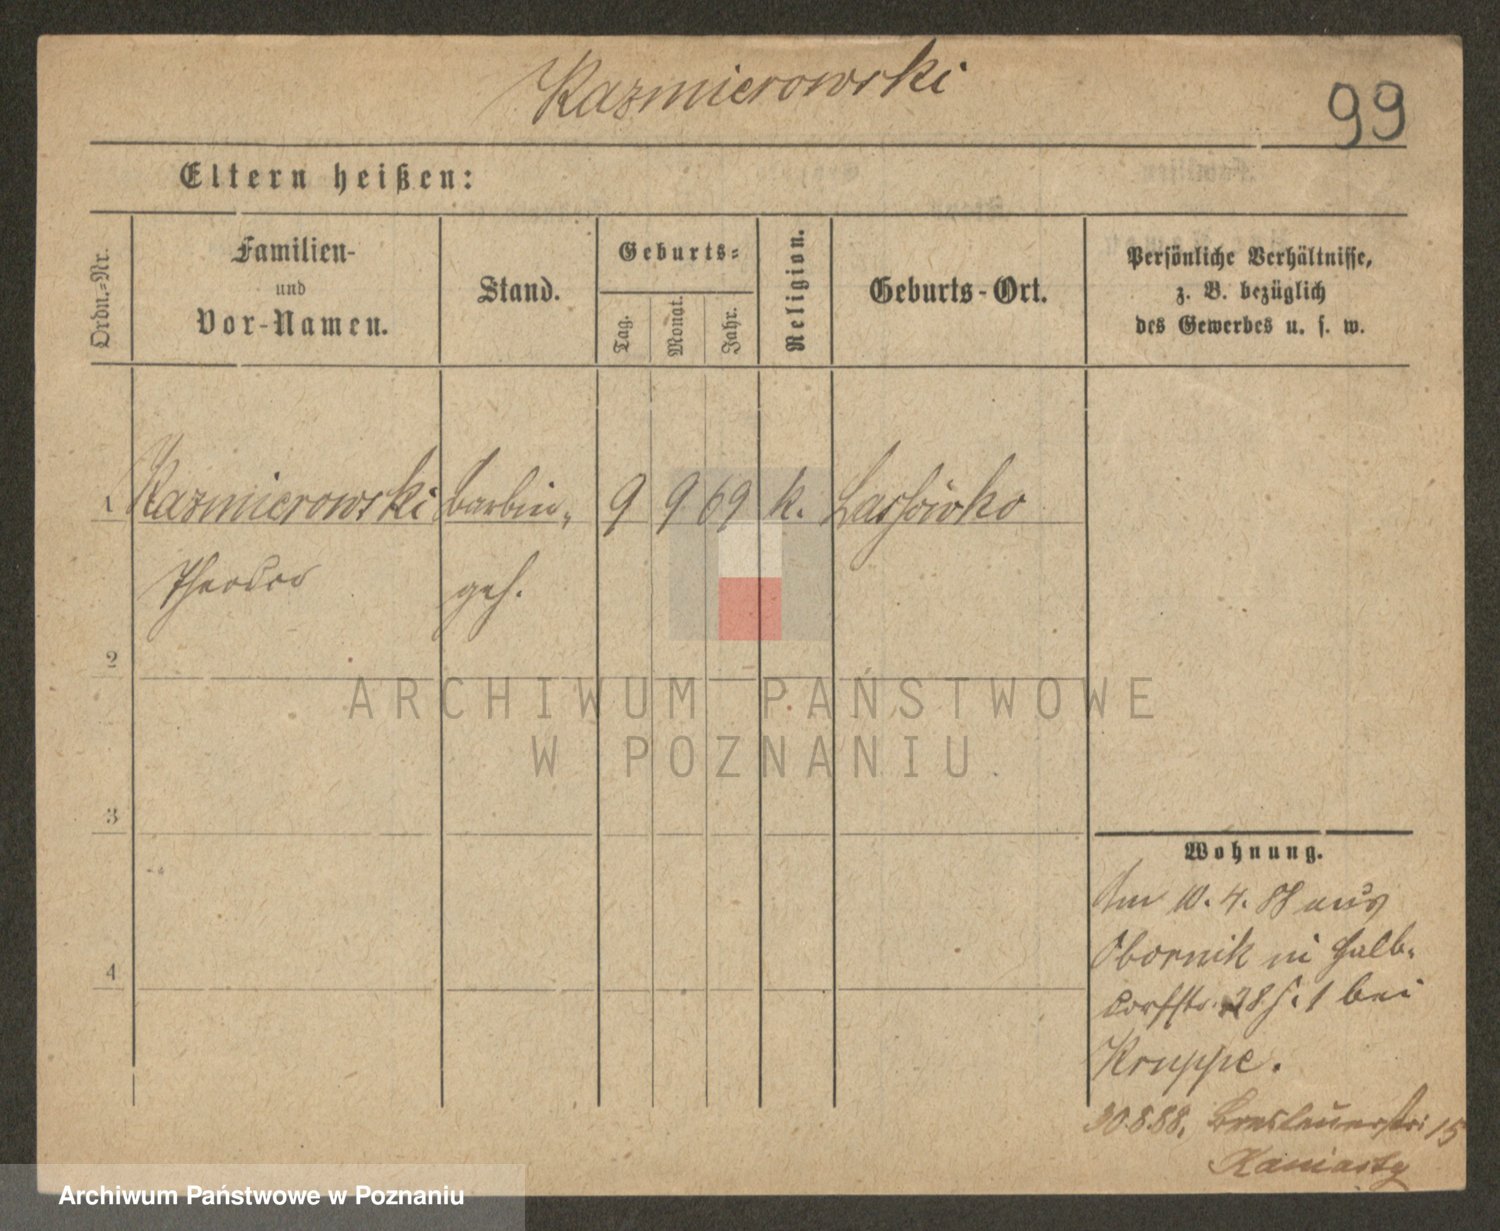 Kazmierowski
99
Eltern heißen:
Ordn.-Nr.
Familien-
und
Vor-Namen.
Stand.
Geburts-
Tag.
Monat.
Jahr.
Religion.
Geburts-Ort.
Persönliche Verhältnisse,
z. B. bezüglich
des Gewerbes u. s. w.
1 Kazmierowski Barbier- 9 9 69 k. Lassowko
Theodor geh.
2
3
4
ARCHIWUM PAŃSTWOWE
W POZNANIU.
Wohnung.
Am 10. 4. 88 aus
Obornik in Halb-
dorfstr. 28 I bei
Kruppe.
30.8.88. Breslauerstr. 15
Kaniasty
Archiwum Państwowe w Poznaniu